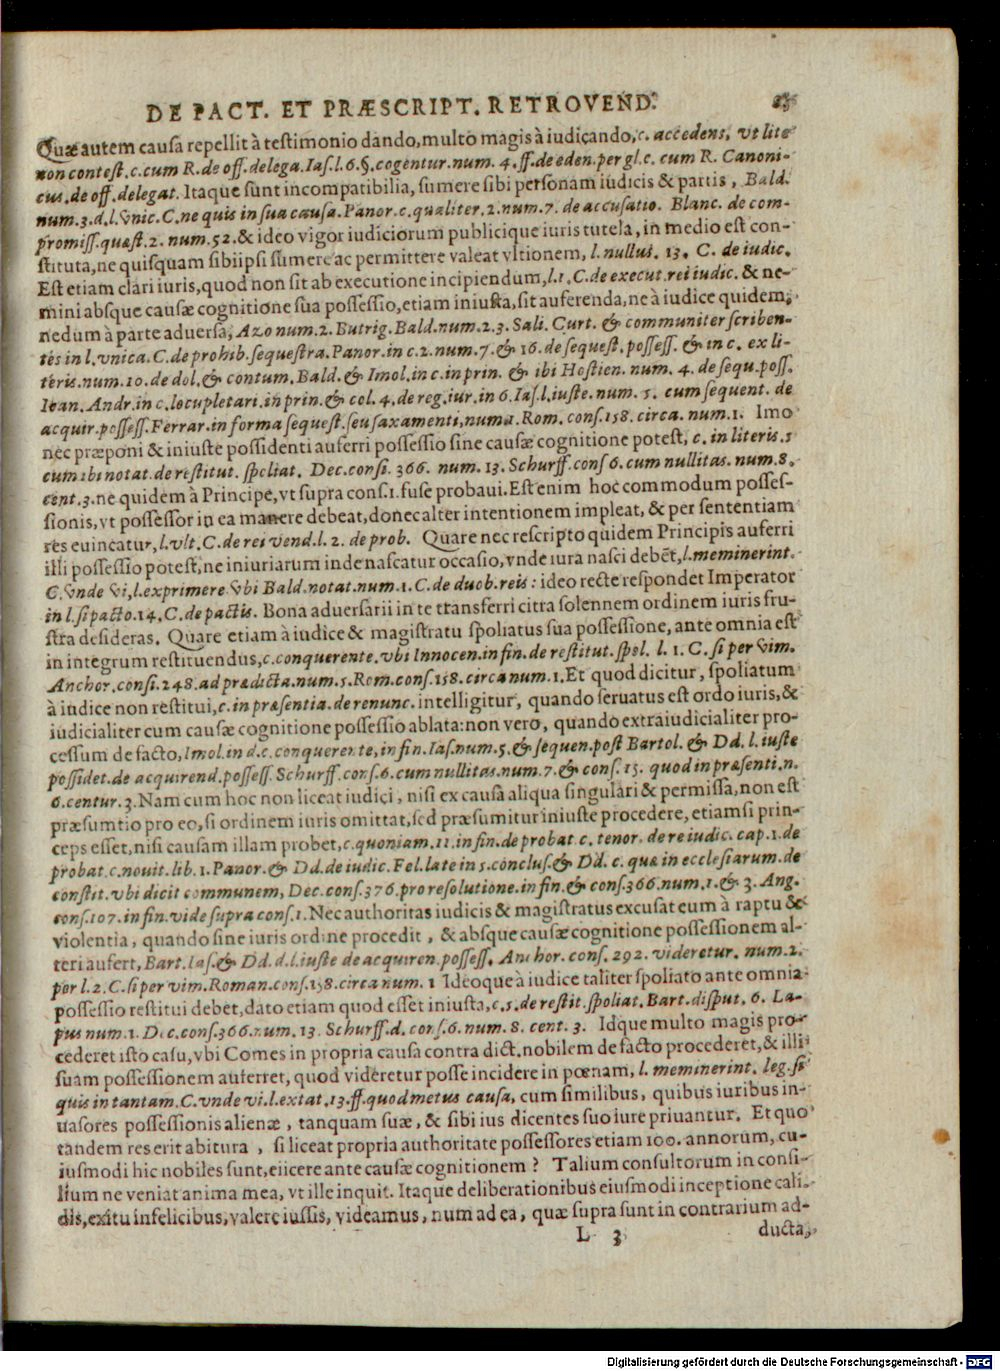 DE PACT. ET PRÆSCRIPT. RETROVEND.
Quæ autem causa repellit à testimonio dando, multo magis à iudicando, c. accedens. vt lite
non contest. c. cum R. de off. delega. Ias. l. 6. §. cogentur. num. 4. ff. de eden. per gl. c. cum R. Canoni-
cus. de off. delegat. Itaque sunt incompatibilia, sumere sibi personam iudicis & partis, Bald.
num. 3. d. l. vnic. C. ne quis in sua causa. Panor. c. qualiter. 2. num. 7. de accusatio. Blanc. de com-
promiss. quæst. 2. num. 52. & ideo vigor iudiciorum publicique iuris tutela, in medio est con-
stituta, ne quisquam sibiipsi sumere ac permittere valeat vltionem, l. nullui. 13. C. de iudic.
Est etiam clari iuris, quod non sit ab executione incipiendum, l. 1. C. de execut. rei iudic. & ne-
mini absque causæ cognitione sua possessio, etiam iniusta, sit auferenda, ne à iudice quidem,
nedum à parte aduersa, Azo num. 2. Butrig. Bald. num. 2. 3. Sali. Curt. & communiter scriben-
tes in l. vnica. C. de prohib. sequestra. Panor. in c. 2. num. 7. & 16. de sequest. possess. & in c. ex li-
teris. num. 10. de dol. & contum. Bald. & Imol. in c. in prin. & ibi Hostien. num. 4. de sequ. poss.
Ioan. Andr. in c. locupletari. in prin. & col. 4. de reg. iur. in 6. Ias. l. iuste. num. 5. cum sequent. de
acquir. possess. Ferrar. in forma sequest. seu saxamenti, num. 1. Rom. cons. 158. circa. num. 1. Imo
nec præponi & iniuste possidenti auferri possessio sine causæ cognitione potest, c. in literis. 1
cum ibi notat. de restitut. spoliat. Dec. consi. 366. num. 13. Schurff. cons 6. cum nullitas. num. 8.
cent. 3. ne quidem à Principe, vt supra cons. 1. fuse probaui. Est enim hoc commodum posses-
sionis, vt possessor in ea manere debeat, donec alter intentionem impleat, & per sententiam
res euincatur, l. vlt. C. de rei vend. l. 2. de prob. Quare nec rescripto quidem Principis auferri
illi possessio potest, ne iniuriarum inde nascatur occasio, vnde iura nasci debẽt, l. meminerint.
C. vnde vi, l. exprimere vbi Bald. notat. num. 1. C. de duob. reis: ideo recte respondet Imperator
in l. si pacto. 14. C. de pactis. Bona aduersarii in te transferri citra solennem ordinem iuris fru-
stra desideras. Quare etiam à iudice & magistratu spoliatus sua possessione, ante omnia est
in integrum restituendus, c. conquerente. vbi Innocen. in fin. de restitut. spol. l. 1. C. si per vim.
Anchor. consi. 248. ad prædicta. num. 5. Rom. cons. 158. circa num. 1. Et quod dicitur, spoliatum
à iudice non restitui, c. in præsentia. de renunc. intelligitur, quando seruatus est ordo iuris, &
iudicialiter cum causæ cognitione possessio ablata: non vero, quando extraiudicialiter pro-
cessum de facto, Imol. in d. c. conquerente, in fin. Ias. num. 5. & sequen. post Bartol. & Dd. l. iuste
possidet. de acquirend. possess. Schurff. cons. 6. cum nullitas. num. 7. & cons. 15. quod in præsenti. n.
6. centur. 3. Nam cum hoc non liceat iudici, nisi ex causa aliqua singulari & permissa, non est
præsumtio pro eo, si ordinem iuris omittat, sed præsumitur iniuste procedere, etiamsi prin-
ceps esset, nisi causam illam probet, c. quoniam. 11. in fin. de probat. c. tenor. de re iudic. cap. 1. de
probat. c. nouit. lib. 1. Panor. & Dd. de iudic. Fel. late in 5. conclus. & Dd. c. quæ in ecclesiarum. de
constit. vbi dicit communem, Dec. cons. 376. pro resolutione. in fin. & cons. 366. num. 1. & 3. Ang.
cons. 107. in fin. vide supra cons. 1. Nec authoritas iudicis & magistratus excusat eum à raptu &
violentia, quando sine iuris ordine procedit, & absque causæ cognitione possessionem al-
teri aufert, Bart. Ias. & Dd. d. l. iuste de acquiren. possess. Anchor. cons. 292. videretur. num. 2.
per l. 2. C. si per vim. Roman. cons. 158. circa num. 1 Ideoque à iudice taliter spoliato ante omnia
possessio restitui debet, dato etiam quod esset iniusta, c. 5. de restit. spoliat. Bart. disput. 6. La-
pus num. 1. Dec. cons. 366. num. 13. Schurff. d. cons. 6. num. 8. cent. 3. Idque multo magis pro-
cederet isto casu, vbi Comes in propria causa contra dict. nobilem de facto procederet, & illi
suam possessionem auferret, quod videretur posse incidere in pœnam, l. meminerint. leg. si
quis in tantam. C. vnde vi. l. extat. 13. ff. quod metus causa, cum similibus, quibus iuribus in-
uasores possessionis alienæ, tanquam suæ, & sibi ius dicentes suo iure priuantur. Et quo
tandem res erit abitura, si liceat propria authoritate possessores etiam 100. annorum, cu-
iusmodi hic nobiles sunt, eiicere ante causæ cognitionem? Talium consultorum in consi-
lium ne veniat anima mea, vt ille inquit. Itaque deliberationibus eiusmodi inceptione cali-
dis, exitu infelicibus, valere iussis, videamus, num ad ea, quæ supra sunt in contrarium ad-
L 3 ducta,
Digitalisierung gefördert durch die Deutsche Forschungsgemeinschaft - DFG